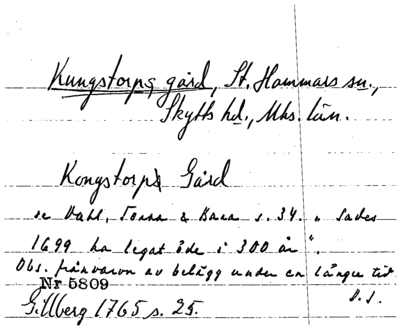 Kungstorps gård, St. Hammars sn.,
Skytts hd., Mhs. län.
Kongstorps Gård
se Dahl, Torna & Bara s. 34. „ Sades
1699 ha legat öde i 300 år ".
Obs. frånvaron av belägg under en längre tid
Nr 5809
Gillberg 1765 s. 25.